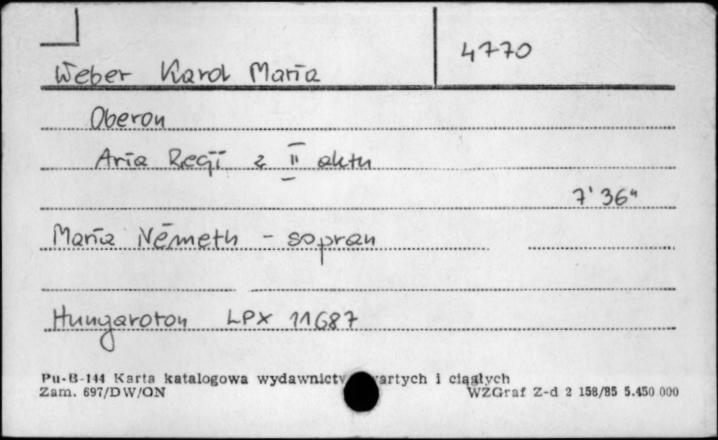 4770
Weber Karol Maria
Oberon
Aria Regi z II aktu
7'36"
Maria Németh - sopran
Hungaroton LPX 11687
Pu-B-144 Karta katalogowa wydawnictw zwartych i ciągłych
Zam. 697/DW/ON WZGraf Z-d 2 158/85 5.450 000